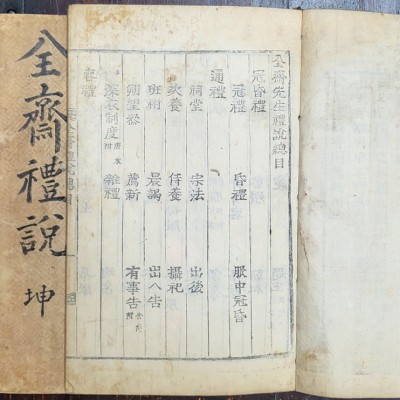 全齋禮說 坤
全齋先生禮說總目
冠昏禮
冠禮 昏禮 服中冠昏
通禮
祠堂 宗法 出後
次養 侍養 攝祀
班祔 晨謁 出入告
朔望參 薦新 有事告
深衣制度 雜禮
喪禮